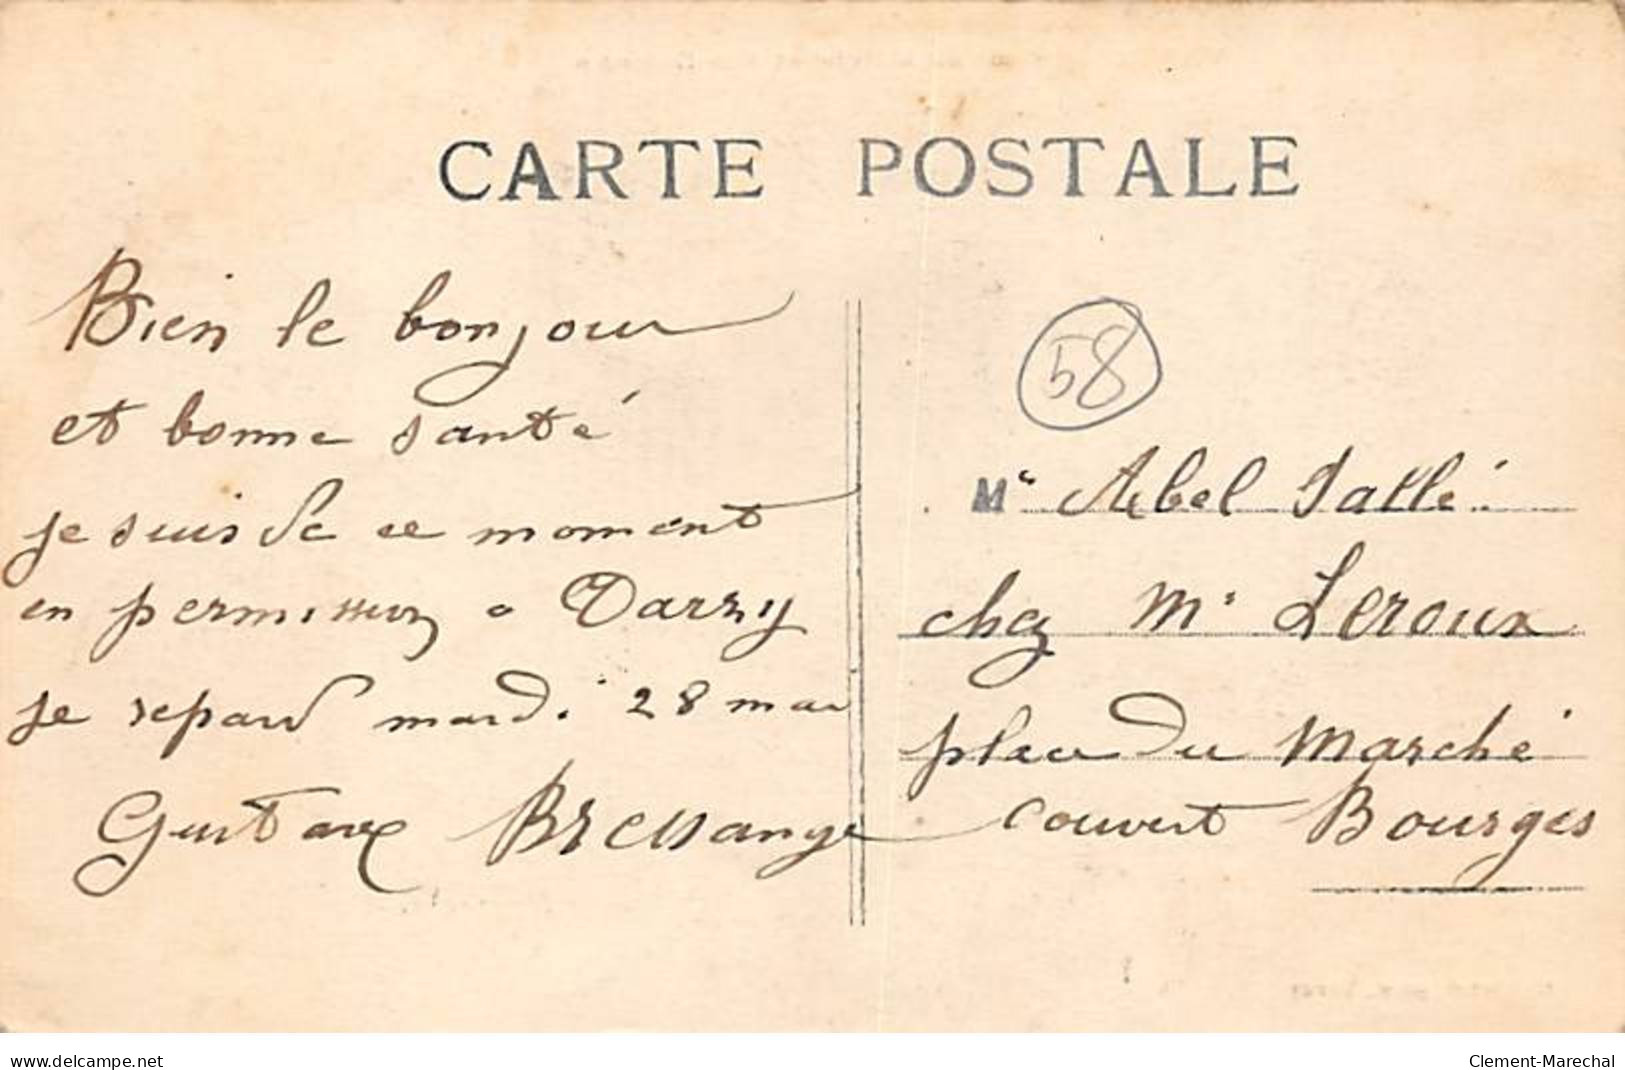 CARTE POSTALE
Bien le bonjour
et bonne santé
je suis de ce moment
en permission a Tarzy
je repard mardi 28 mai
Gustave Bressange
58
Mr Abel Jallé
chez Mr Leroux
place du Marché
couvert Bourges
www.delcampe.net
Clement-Marechal